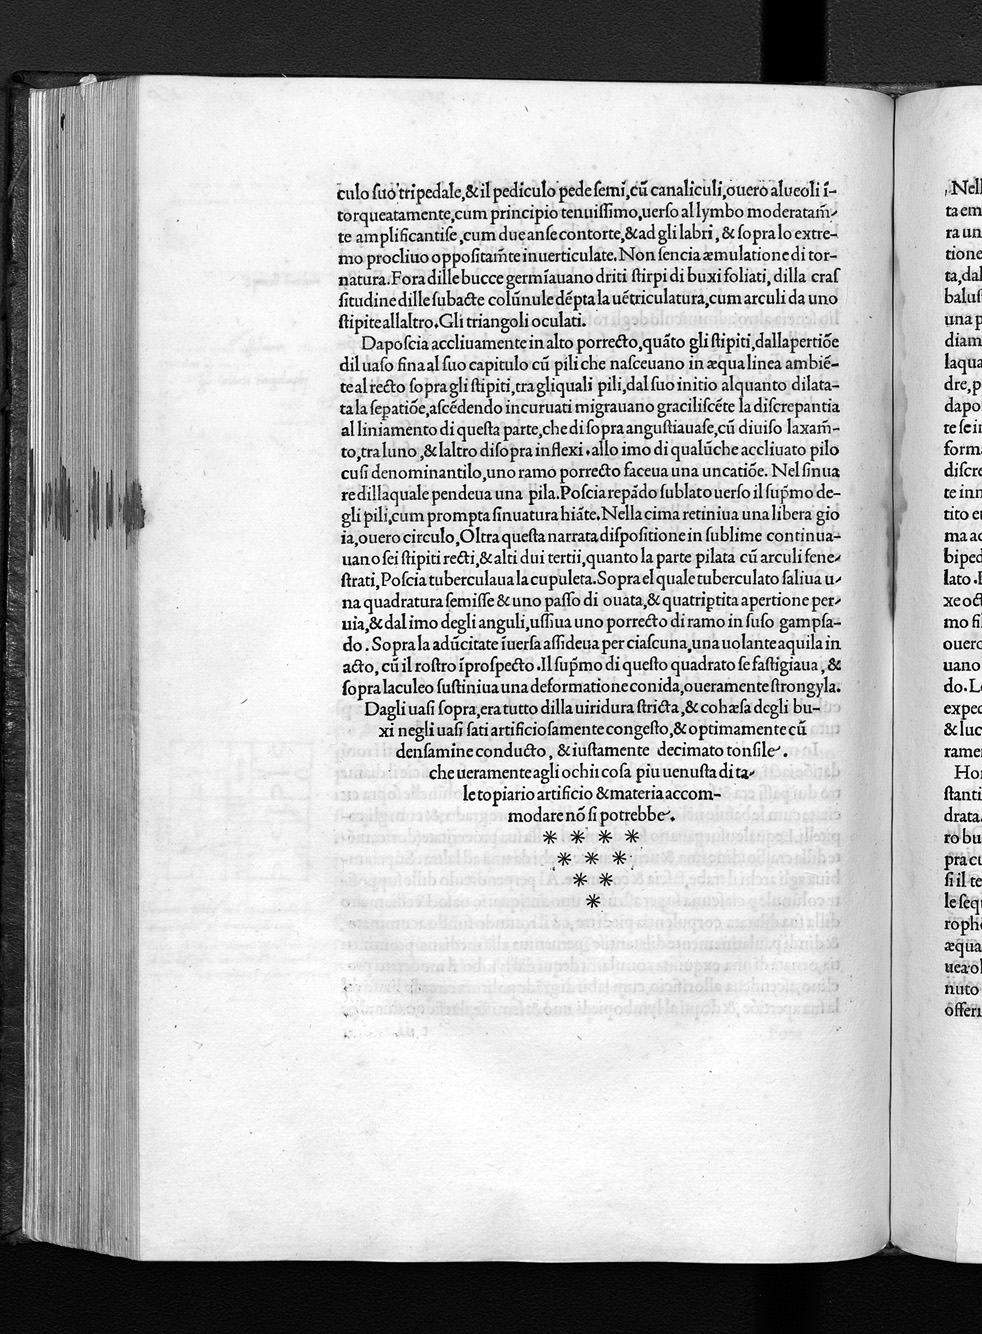 culo ſuo tripedale,& il pediculo pede ſemi, cũ canaliculi, ouero alueoli ĩ-
torqueatamente, cum principio tenuiſſimo, uerſo al lymbo moderatam̃-
te amplificantiſe, cum due anſe contorte, & ad gli labri, & ſopra lo extre-
mo procliuo oppoſitam̃te inuerticulate. Non ſencia æmulatione di tor-
natura. Fora dille bucce germĩauano driti ſtirpi di buxi foliati, dilla craſ
ſitudine dille ſubacte colũnule dẽpta la uẽtriculatura, cum arculi da uno
ſtipite allaltro. Gli triangoli oculati.
Dapoſcia accliuamente in alto porrecto, quãto gli ſtipiti, dallapertiõe
dil uaſo fina al ſuo capitulo cũ pili che naſceuano in æqua linea ambiẽ-
te al recto ſopra gli ſtipiti, tra gliquali pili, dal ſuo initio alquanto dilata-
ta la ſepatiõe, aſcẽdendo incuruati migrauano graciliſcẽte la diſcrepantia
al liniamento di queſta parte, che di ſopra anguſtiauaſe, cũ diuiſo laxam̃-
to, tra luno, & laltro diſopra inflexi. allo imo di qualũche accliuato pilo
cuſi denominantilo, uno ramo porrecto faceua una uncatiõe. Nel ſinua
re dillaquale pendeua una pila. Poſcia repãdo ſublato uerſo il ſup̃mo de-
gli pili, cum prompta ſinuatura hiãte. Nella cima retiniua una libera gio
ia, ouero circulo, Oltra queſta narrata diſpoſitione in ſublime continua-
uano ſei ſtipiti recti, & alti dui tertii, quanto la parte pilata cũ arculi fene-
ſtrati, Poſcia tuberculaua la cupuleta. Sopra el quale tuberculato ſaliua u-
na quadratura ſemiſſe & uno paſſo di ouata, & quatriptita apertione per-
uia, & dal imo degli anguli, uſſiua uno porrecto di ramo in ſuſo gampſa-
do. Sopra la adũcitate ĩuerſa aſſideua per ciaſcuna, una uolante aquila in
acto, cũ il roſtro ĩproſpecto. Il ſup̃mo di queſto quadrato ſe faſtigiaua, &
ſopra laculeo ſuſtiniua una deformatione conida, oueramente ſtrongyla.
Dagli uaſi ſopra, era tutto dilla uiridura ſtricta, & cohæſa degli bu-
xi negli uaſi ſati artificioſamente congeſto, & optimamente cũ
denſamine conducto, & iuſtamente decimato tonſile.
che ueramente agli ochii coſa piu uenuſta di ta-
le topiario artificio & materia accom-
modare nõ ſi potrebbe.
* * * *
* * *
* *
*
Nell
ta em
ra un
tione
ta, dal
baluſ
una p
diam
laqua
dre, p
dapo
te ſe i
form
diſcre
te inn
tito eu
ma ac
biped
lato.
xe oct
mo fil
ouero
uano
do. L
exped
& luc
ramen
Hor
ſtanti
drata.
ro bu
pra cu
ſi il te
le ſequ
rophe
æqua
uea ol
nuto
offeri